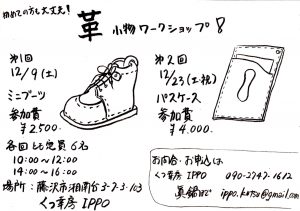 初めての方も大丈夫！
革 小物ワークショップ
第1回
12/9(土)
ミニブーツ
参加費
¥2500.
第2回
12/23(土・祝)
パスケース
参加費
¥4,000.
各回とも定員6名
10:00~12:00
14:00~16:00
場所：藤沢市湘南台3-2-3-103
くつ工房 IPPO
お問合・お申込は
くつ工房 IPPO 090-2747-1612
真鍋まで ippo.kutsu@gmail.com